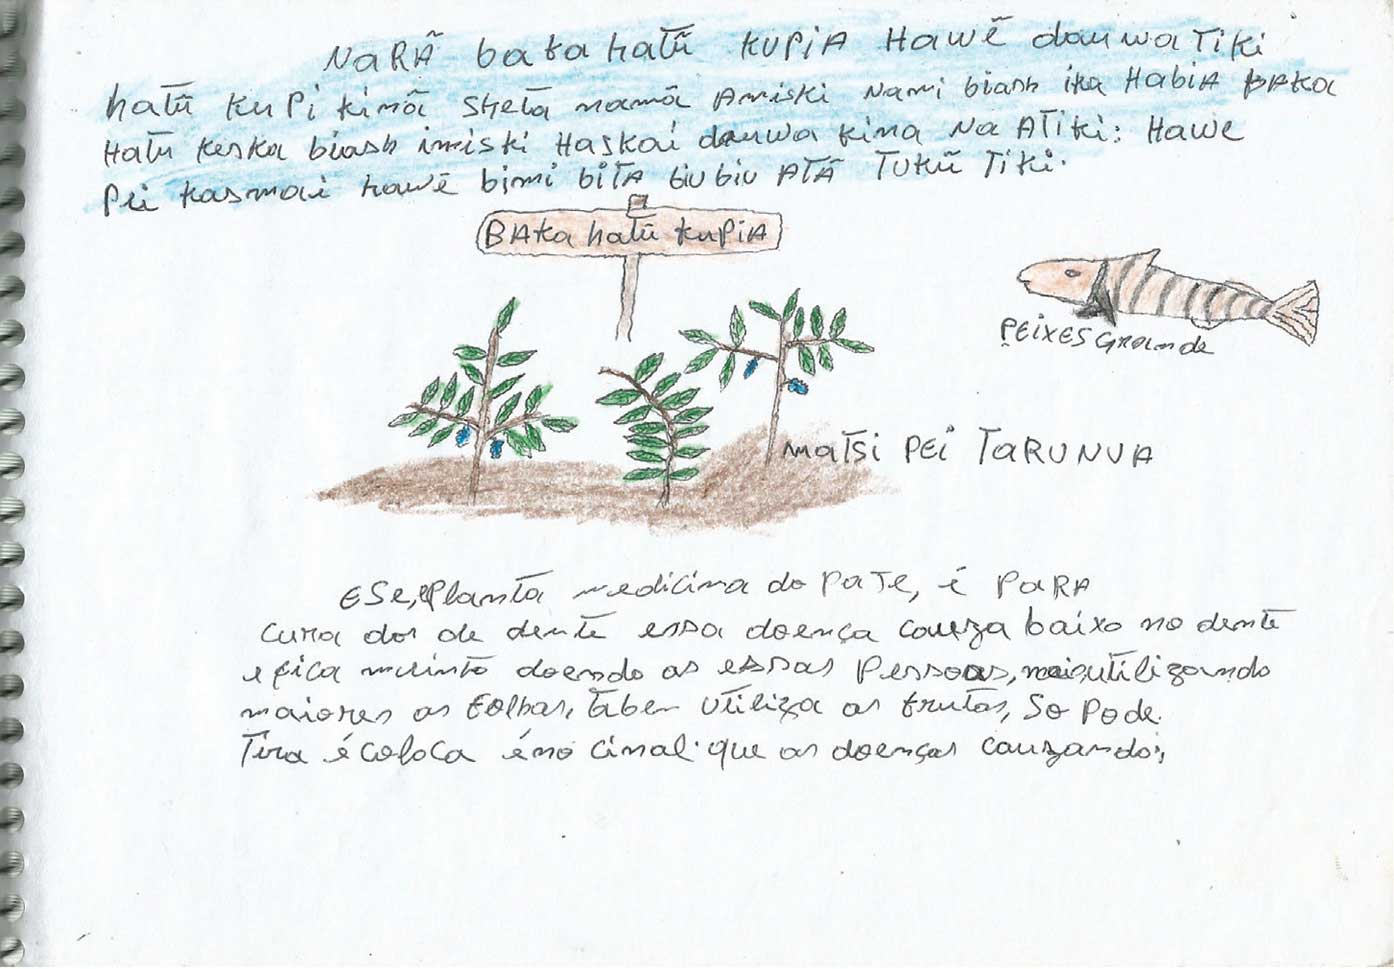 NARÃ baka hatũ KUPIA Hawẽ dauwa Tiki
hatũ KUPi kinã Shetã namã Amiski Nami biash ika Habia BAKa
Hatũ Keska biash imiski Haskai dauwa kina Na ATiki: Hawe
Pei kasmai hawẽ bimi biTA biu biu ATÃ TUKŨ Tiki.
BAKa hatũ kupiA
PEiXES Grande
MATSi PEi TARUNUA
ESe, Planta medicina do PaJe, é PARA
cura dor de dente essa doença cauza baixo no dente
e fica muinto doendo as essas Pessoas, utilizando
maiores as Folhas, Tãbem Utiliza as frutas, So Pode.
Tira é coloca éno cimal. que as doenças cauzando;,